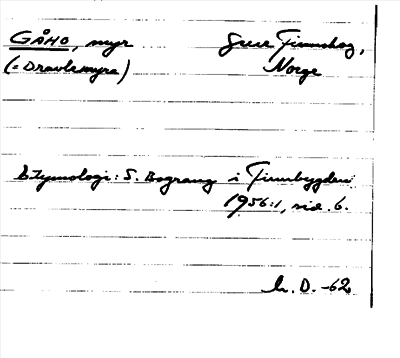 GÅHO, myr Grue Finnskog,
(= Dravlemyra) Norge
Etymologi: S. Bograng i Finnbygden
1956:1, sid. 6.
h. D. -62